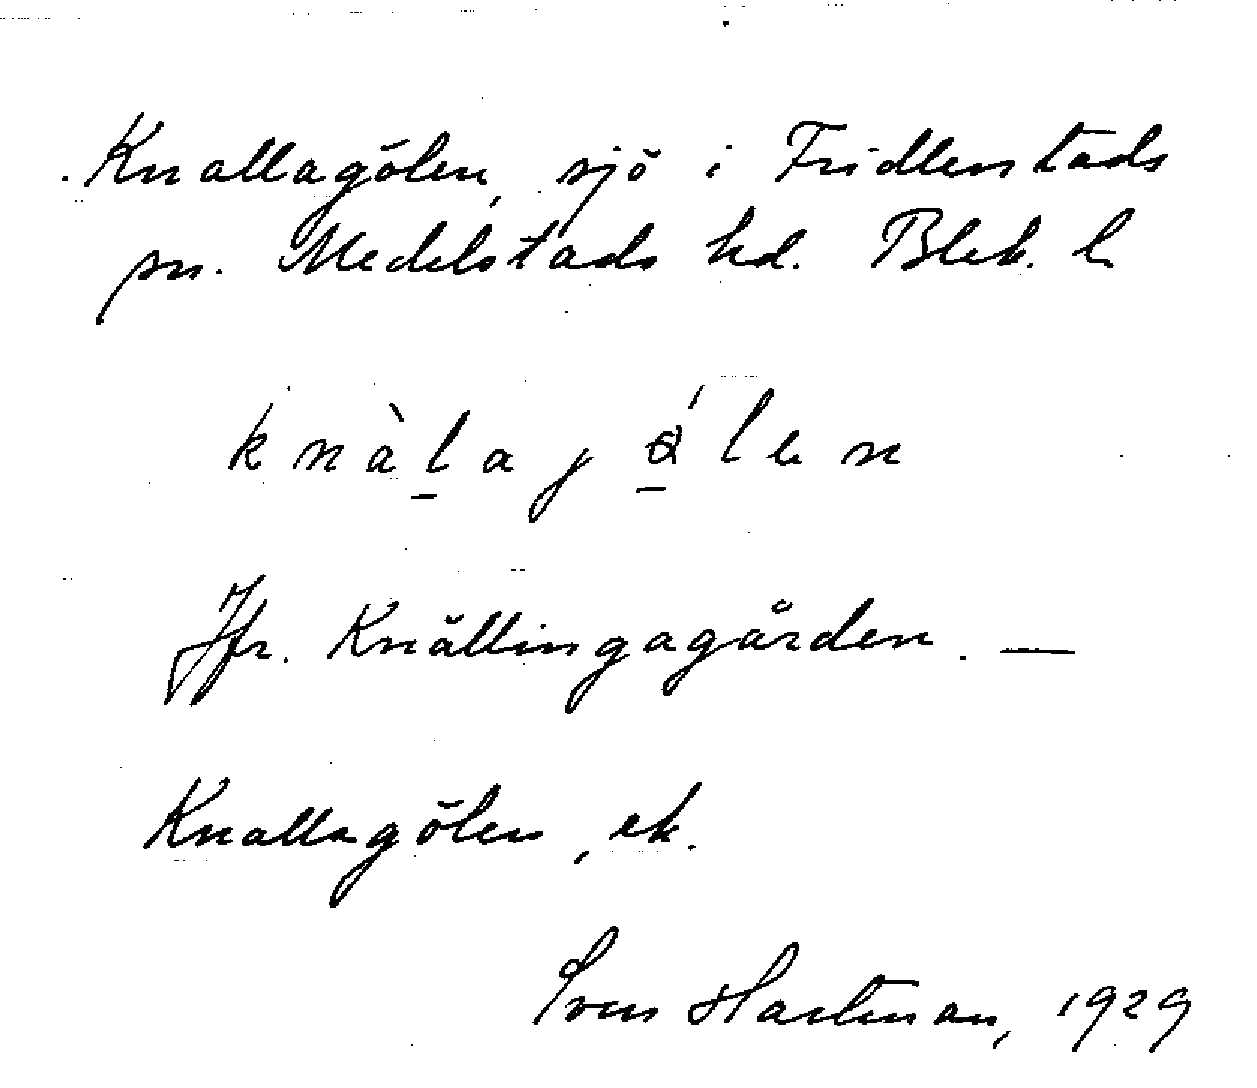 Knallagölen, sjö i Fridlenstads
sn. Medelstads hd. Blek. l.
knàl̲ajɷ̲́len
Jfr. Knällingagården. —
Knallagölen, ek.
Sven Hartman, 1929